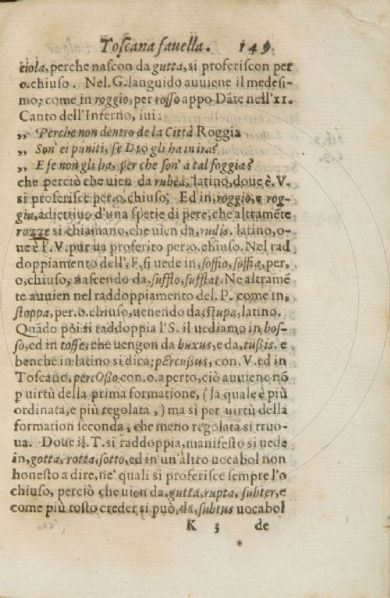 Toscana fauella. 149
ciola, perche nascon da gutta, si proferiscon per
o.chiuso. Nel.G.languido auuiene il medesi-
mo; come in roggio, per rosso appo Dāte nell'XI.
Canto dell'Inferno, iui:
„ Perche non dentro de la Città Roggia
„ Son' ei puniti, se Dio gli ha in ira?
„ E se non gli ha, per che son' a tal foggia?
che perciò che uien da rubea, latino, doue è.V.
si proferisce per.o.chiuso; Ed in, roggio, e rog-
gia, adiettiuo d'una spetie di pere, che altramēte
rozze si chiamano, che uien da, rudis. latino, o-
ue è l'.V. pur ua proferito per.o.chiuso. Nel rad
doppiamento dell'.F. si uede in, soffio, soffia, per,
o, chiuso, nascendo da, sufflo, sufflat. Ne altramē
te auuien nel raddoppiamento del.P. come in,
stoppa, per.o.chiuso, uenendo da, stupa, latino.
Quādo poi si raddoppia l'S. il uediamo in, bos-
so, ed in tosse, che uengon da buxus, e da, tussis. e
benche in latino si dica, pErcussus, con.V. ed in
Toscano, percOsso con.o.aperto, ciò auuiene nō
p uirtù della prima formatione, (la quale è più
ordinata, e più regolata,) ma si per uirtù della
formation seconda, che meno regolata si truo-
ua. Doue il.T. si raddoppia, manifesto si uede
in, gotta, rotta, sotto, ed in un'altro uocabol non
honesto a dire, ne' quali si proferisce sempre l'o
chiuso, perciò che uien da, gutta, rupta, subter, e
come più tosto creder si può, da, subtus uocabol
K 3 de